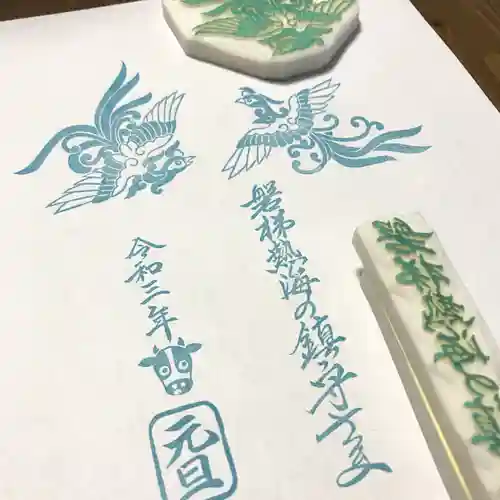 磐梯熱海の鎮守さま
令和三年
元旦